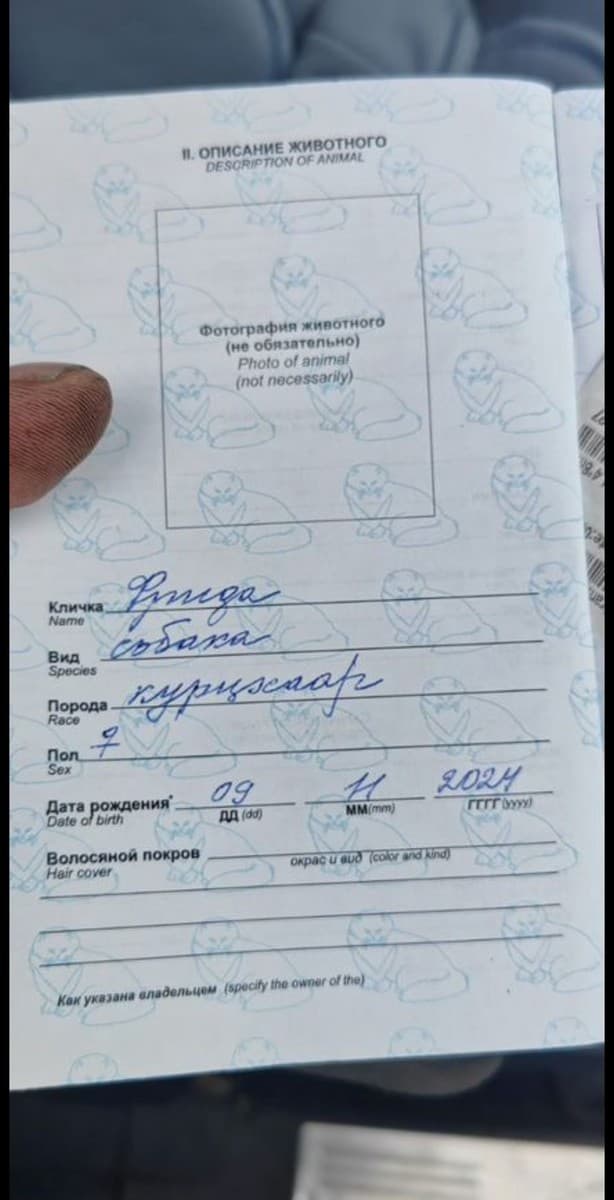 II. ОПИСАНИЕ ЖИВОТНОГО
DESCRIPTION OF ANIMAL
Фотография животного
(не обязательно)
Photo of animal
(not necessarily)
Кличка Фрида
Name
Вид собака
Species
Порода курцхаар
Race
Пол ♀
Sex
Дата рождения* 09 11 2024
Date of birth ДД (dd) ММ(mm) ГГГГ (yyyy)
Волосяной покров
Hair cover окрас и вид (color and kind)
Как указана владельцем (specify the owner of the)